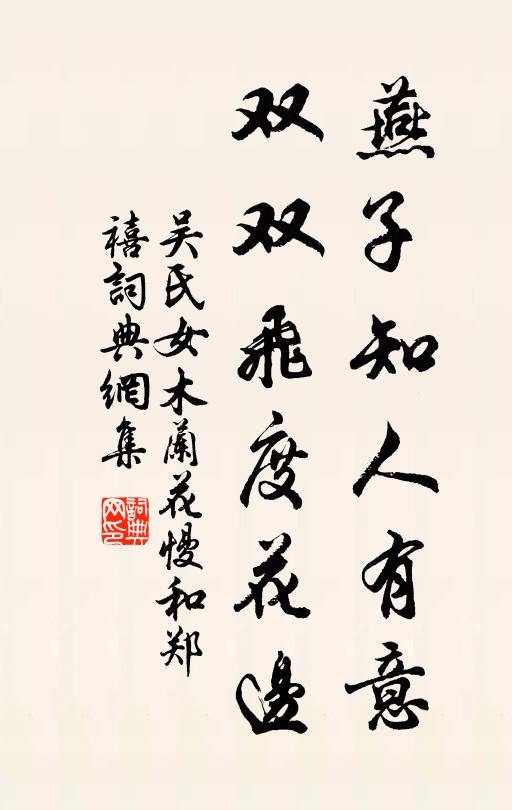 燕子知人有意
双双飛度花邊
吴氏女木蘭花慢和郑
禧詞典網集
詞典網印